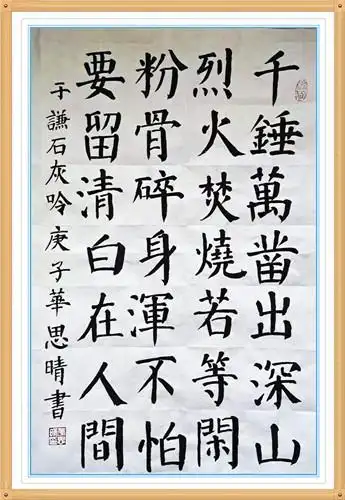 千錘萬凿出深山
烈火焚燒若等閑
粉骨碎身渾不怕
要留清白在人間
于謙石灰吟庚子華思晴書